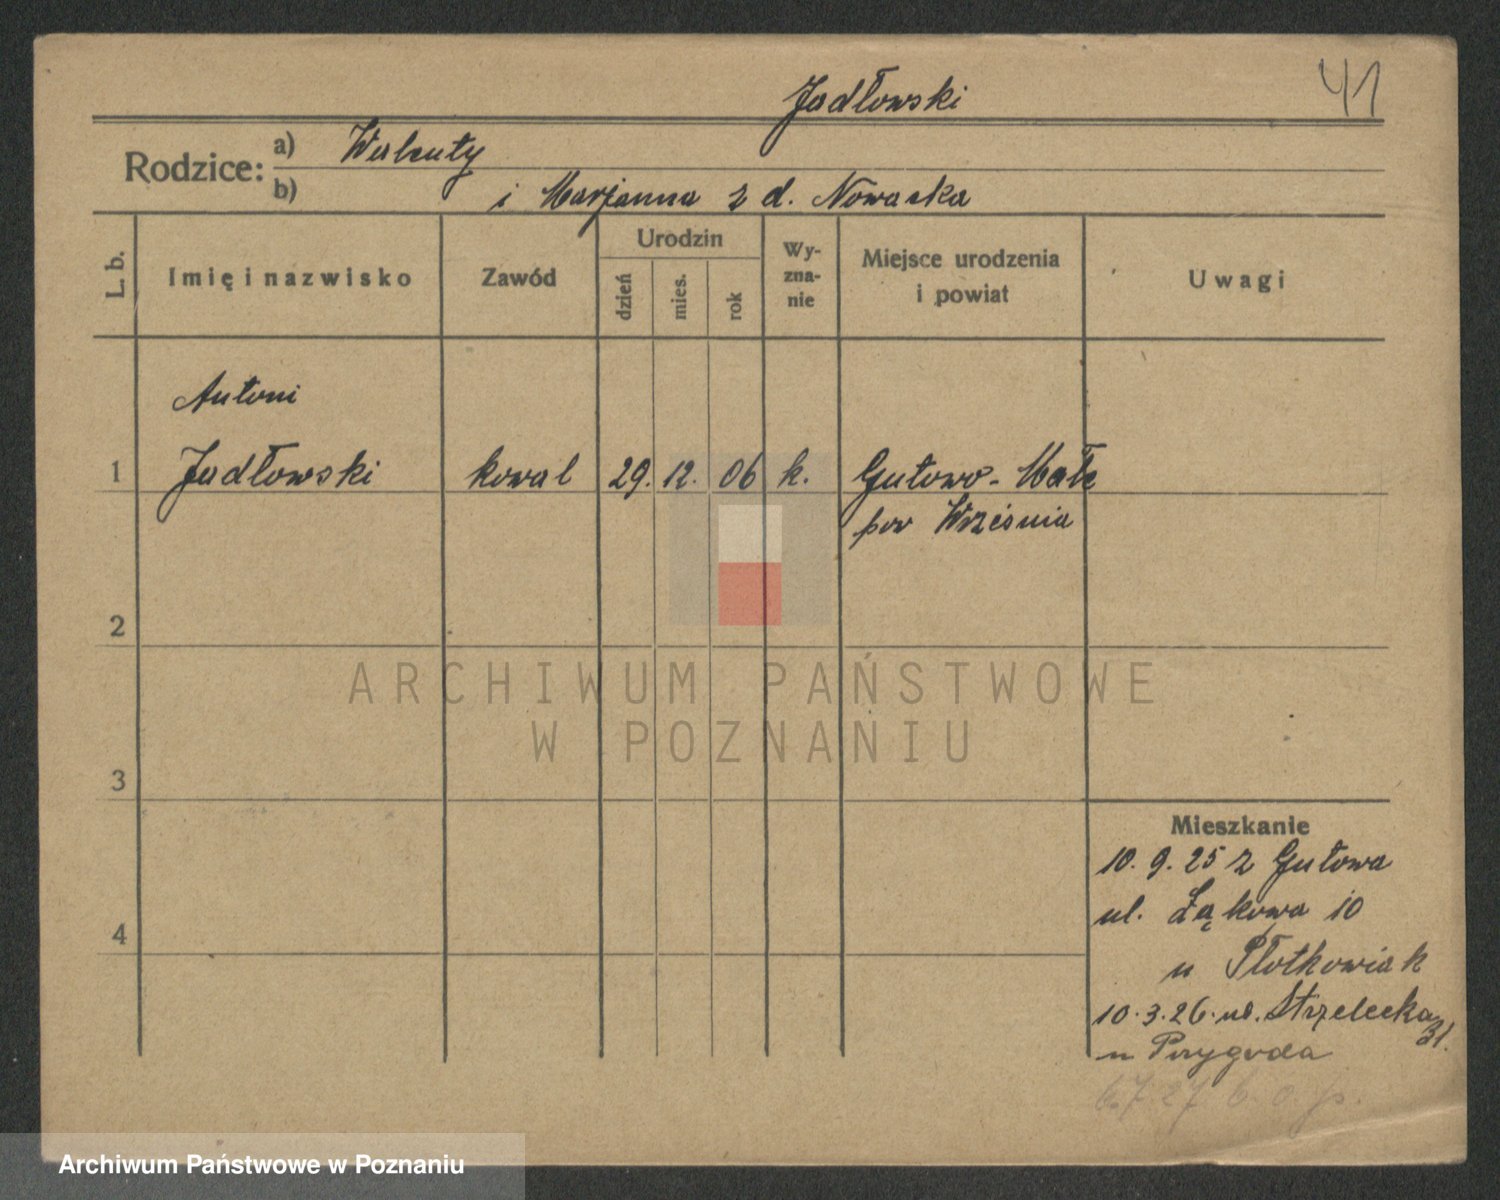 Jadłowski
41
Rodzice: a) Walenty
b) i Marjanna z d. Nowacka
L. b.
Imię i nazwisko
Zawód
Urodzin
dzień
mies.
rok
Wy-
zna-
nie
Miejsce urodzenia
i powiat
Uwagi
Antoni
1 Jadłowski kowal 29. 12. 06 k. Gutowo-Małe
pow Września
2
3
4
ARCHIWUM PAŃSTWOWE
W POZNANIU
Mieszkanie
10. 9. 25 z Gutowa
ul. Łąkowa 10
u Płotkowiak
10. 3. 26. ul. Strzelecka
31.
u Przygoda
6.7.27 b. o. p.
Archiwum Państwowe w Poznaniu